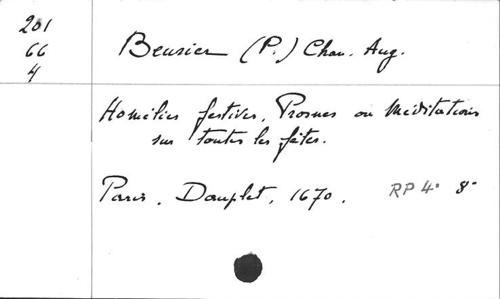 201
66
4
Beurier (P.) Chan. Aug.
Homélies festives, Prosnes ou Méditations
sur toutes les fêtes.
Paris, Douplet, 1670. RP 4° 8°